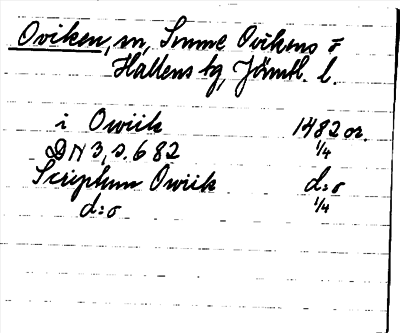 Oviken, sn, Sunne Ovikens o
Hallens tg, Jämtl. l.
i Owiik 1482 or.
DN 3, s. 682 1/4
Scriptum Owiik d:o
d:o 1/4